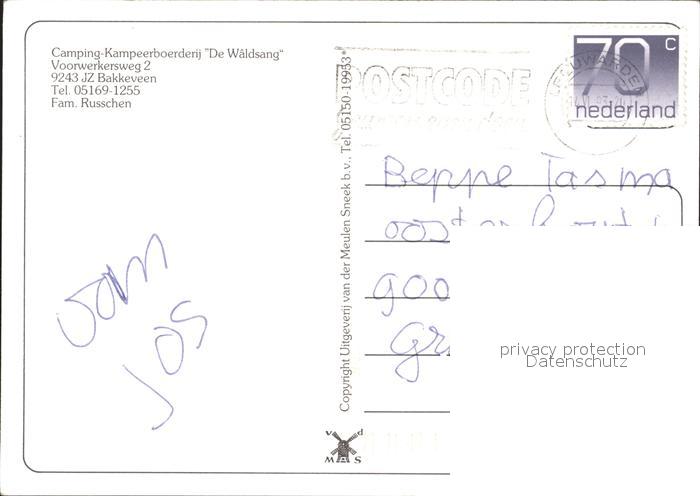 Camping-Kampeerboerderij "De Wâldsang"
Voorwerkersweg 2
9243 JZ Bakkeveen
Tel. 05169-1255
Fam. Russchen
POSTCODE
LEEUWARDEN
70 c
nederland
Copyright Uitgeverij van der Meulen Sneek b.v., Tel. 05150-19953*
Beppe Tasma
goo
Gr
oom
Jos
privacy protection
Datenschutz
v d
M S